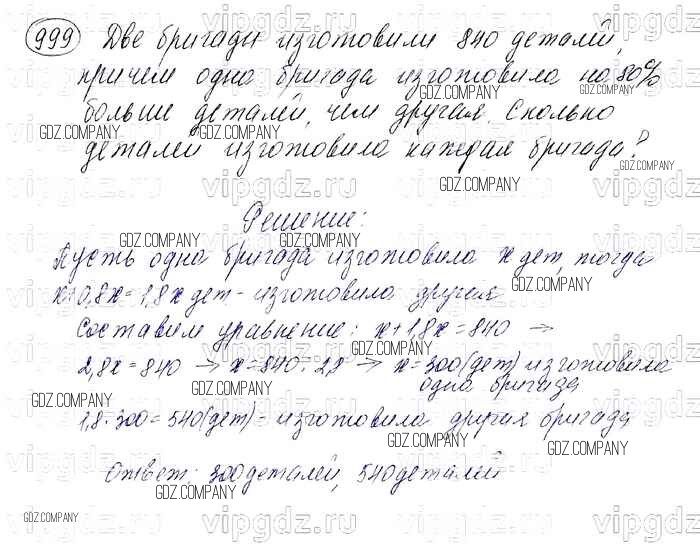 999 Две бригады изготовили 840 деталей,
причем одна бригада изготовила на 80%
больше деталей, чем другая. Сколько
деталей изготовила каждая бригада?
Решение:
Пусть одна бригада изготовила x дет, тогда
x+0,8x=1,8x дет - изготовила другая
Составим уравнение: x+1,8x=840 →
2,8x=840 → x=840:2,8 → x=300(дет) изготовила
одна бригада
1,8·300=540(дет)= изготовила другая бригада
Ответ: 300 деталей, 540 деталей
vipgdz.ru
GDZ.COMPANY